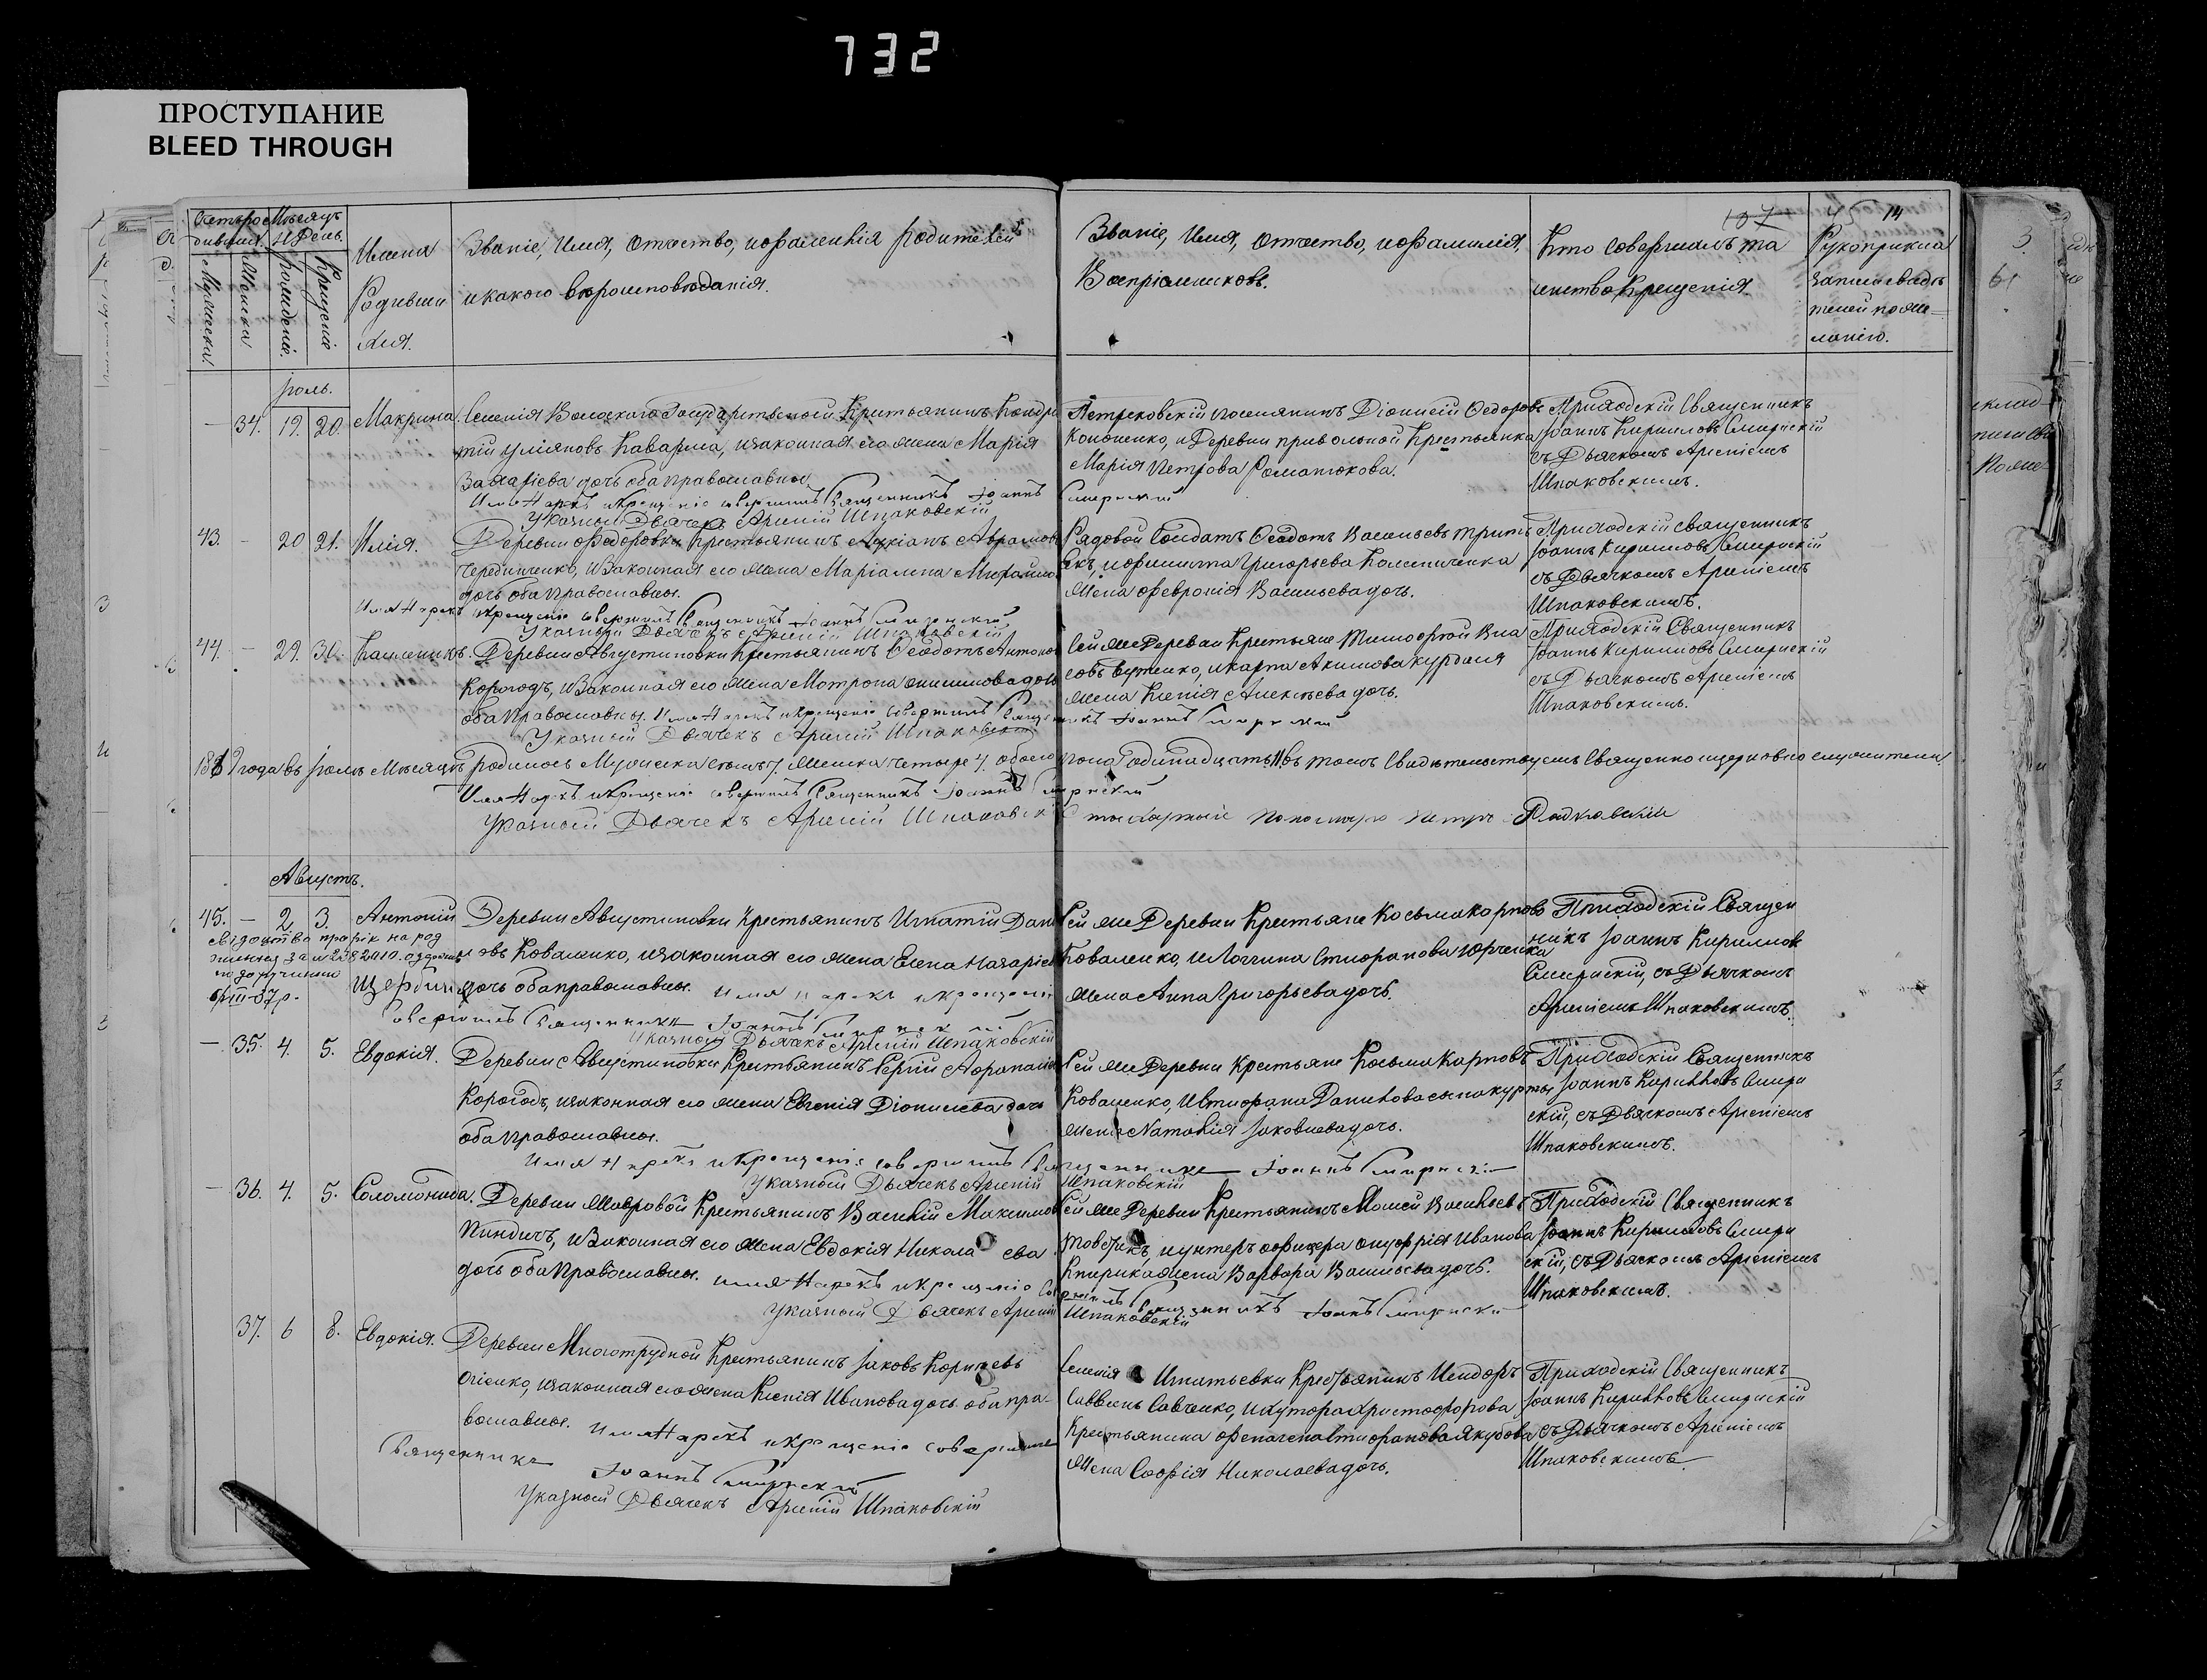 732
ПРОСТУПАНИЕ
BLEED THROUGH
107 45 14
Счетъ родившихся
Мѣсяцъ и День.
Мужеска.
Женска
рожденія.
Крещенія
Имена Родивши хся.
Званіе, Имя, Отчество, и фамилія родителей
и какого вѣроисповѣданія.
Званіе, Имя, отчество, и фамилія,
Воспріемниковъ.
Кто совершалъ та
инство крещенія.
Рукоприкла
запись свидѣ
телей по же=
ланію.
Іюль.
— 34. 19. 20. Макрина.
Селенія Волоскаго Государственной Крестьянинъ Кондра
тій Уліяновъ Каварма, и законная его жена Марія
Захаріева дочь оба православные
Петрековскій поселянинъ Діонисій Ѳедоровъ
Кононенко, и Деревни привольной Крестьянка
Марія Петрова Романюкова.
Приходскій Священникъ
Іоаннъ Кирилловъ Смирнскій
съ Дьячкомъ Арсеніемъ
Шпаковскимъ.
Имя Нарекъ и Крещеніе совершилъ Священникъ Іоаннъ Смирнскій
Указной Дьячекъ Арсеній Шпаковскій
43. — 20 21. Илія.
Деревни Федоровки Крестьянинъ Лукіанъ Аврамовъ
Чередниченко, и Законная его жена Маріамна
дочь оба Православны.
Рядовой Солдатъ Ѳеодотъ Васильевъ
Григорьева Колесниченка
жена Февронія Васильева дочь.
Приходскій священникъ
Іоаннъ Кирилловъ Смирнскій
съ Дьячкомъ Арсеніемъ
Шпаковскимъ.
Имя Нарекъ и крещеніе совершилъ Священникъ Іоаннъ Смирнскій
Указный Дьячекъ Арсеній Шпаковскій
44. — 29. 30. Каллиникъ.
Деревни Августиновки Крестьянинъ Ѳеодотъ Антоновъ
Корогодъ, и Законная его жена Мотрона Онисимова дочь
оба Православны. Имя Нарекъ и крещеніе совершилъ Священникъ Іоаннъ Смирнскій
Сей же Деревни Крестьяне Тимофей Вла
совъ Бутенко, и Карпа Акимова Курбала
жена Ксенія Алексѣева дочь.
Приходскій Священникъ
Іоаннъ Кирилловъ Смирнскій
съ Дьячкомъ Арсеніемъ
Шпаковскимъ.
Указный Дьячекъ Арсеній Шпаковскій
года въ Іюлѣ Мѣсяцѣ родилось Мужеска семь 7. Женска четыре 4. обоего пола Одинадцать 11. въ томъ Свидѣтельствуемъ Священно и церковно служители.
Имя Нарекъ и Крещеніе совершилъ Священникъ Іоаннъ Смирнскій
Указный Дьячекъ Арсеній Шпаковскій
Пономарь Петръ Радковскій
Августъ.
45. — 2. 3. Антоній
Деревни Августиновки Крестьянинъ Игнатій Дани
овъ Коваленко, и законная его жена Елена Назаріева
дочь оба православны. Имя Нарекъ и крещеніе
Щербин
Сей же Деревни Крестьяне Косьма Карповъ
Коваленко, и Логгина Стефанова Юрченка
жена Анна Григорьева дочь.
Приходскій Священ
никъ Іоаннъ Кириллов
Смирнскій, съ Дьячкомъ
Арсеніемъ Шпаковскимъ.
Свідоцтво про рік народ
совершилъ Священникъ Іоаннъ Смирнскій
Указной Дьячекъ Арсеній Шпаковскій
— 35. 4. 5. Евдокія.
Деревни Августиновки Крестьянинъ Сергій Афанасіевъ
Корогодъ, и законная его жена Евгенія Діонисіева дочь
оба Православны.
Сей же Деревни Крестьяне Косьма Карповъ
Коваленко, и Стефана Данилова сына Курты
жена Наталія Іаковлева дочь.
Приходскій Священникъ
Іоаннъ Кирилловъ Смирн
скій, съ Дьячкомъ Арсеніемъ
Шпаковскимъ.
Имя Нарекъ и Крещеніе совершилъ Священникъ Іоаннъ Смирнскій
Указный Дьячекъ Арсеній Шпаковскій
— 36. 4. 5. Соломонида.
Деревни Мавровой Крестьянинъ Василій Максимов
Пиндичъ, и Законная его жена Евдокія Никола ева
дочь оба Православны. Имя Нарекъ и крещеніе совершилъ Священникъ Іоаннъ Смирнскій
Сей же Деревни Крестьянинъ Мойсей Васильевъ
Товстикъ, и унтеръ офицера Онуфрія Иванова
Кнырика жена Варвара Васильева дочь.
Приходскій Священникъ
Іоаннъ Кирилловъ Смирн
скій, съ Дьячкомъ Арсеніемъ
Шпаковскимъ.
Указный Дьячекъ Арсеній Шпаковскій
37. 6 8. Евдокія.
Деревни Многотрудной Крестьянинъ Іаковъ Корнѣевъ
Огіенко, и законная его жена Ксенія Иванова дочь оба пра-
вославны. Имя Нарекъ и крещеніе совершилъ
Священникъ Іоаннъ Смирнскій
Селенія Игнатьевки Крестьянинъ Исидоръ
Саввинъ Савченко, и хутора Христофорова
Крестьянина Стефанова Якубова
жена Софія Николаева дочь.
Приходскій Священникъ
Іоаннъ Кирилловъ Смирнскій
съ Дьячкомъ Арсеніемъ
Шпаковскимъ.
Указной Дьячекъ Арсеній Шпаковскій